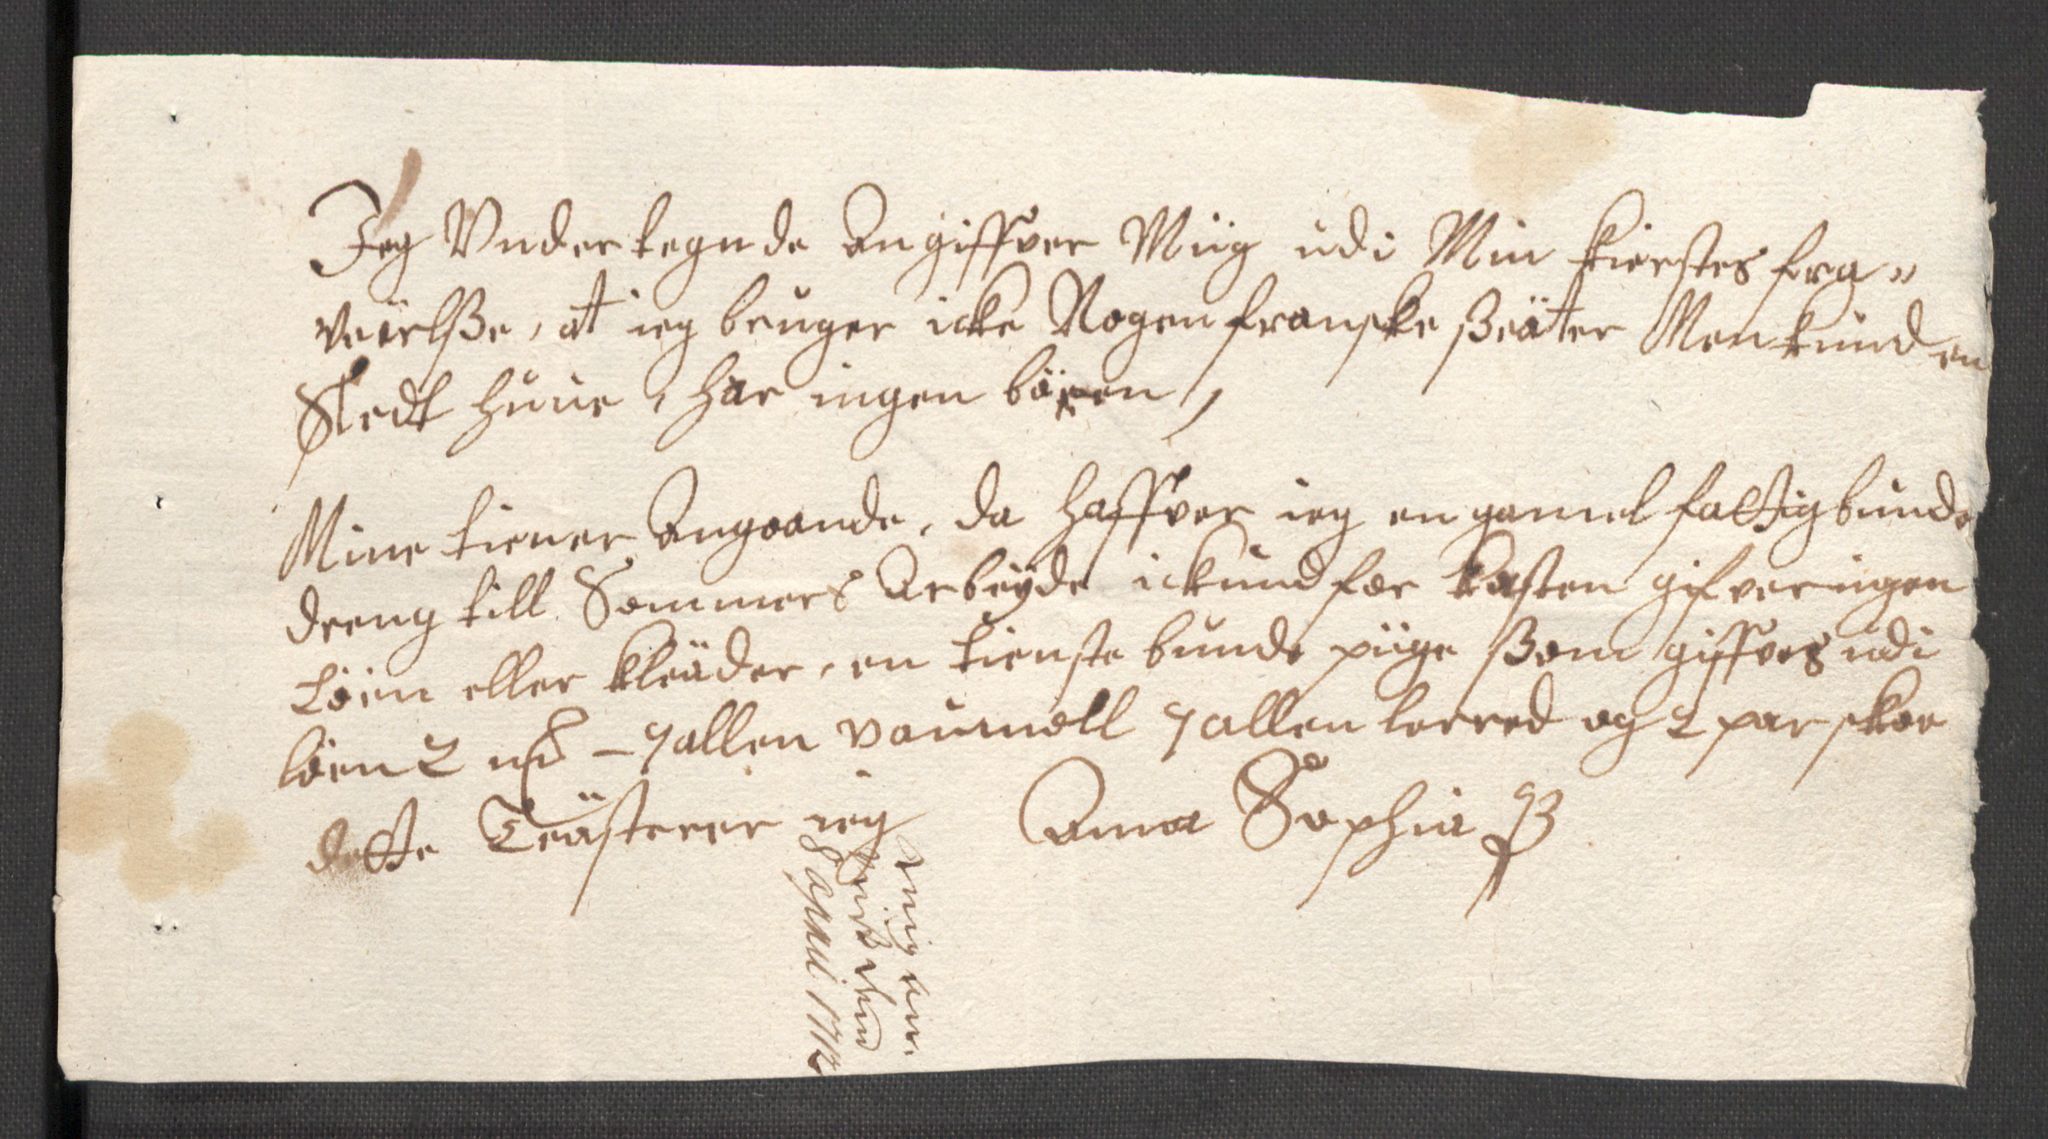 Jeg Vndertegnde Angiffver Miig udi Min kierstes fra„
veirlße, at ieg bruger icke Nogen franske ßeäter Men kund en
Sledt huue, har ingen bören,
Mine tiener Angoande, da haffver ieg en gamel fattig bunde
dreng till Sommers Arbeÿde ickund for kosten gifver ingen
Löen eller kleäder, en tienste bunde piige ßom giffves udi
löen 2 rd – 7 allen vaumell 7 allen lerred og 2 par skoe
dette Teästerer ieg Anna Sophia
8 april 1712